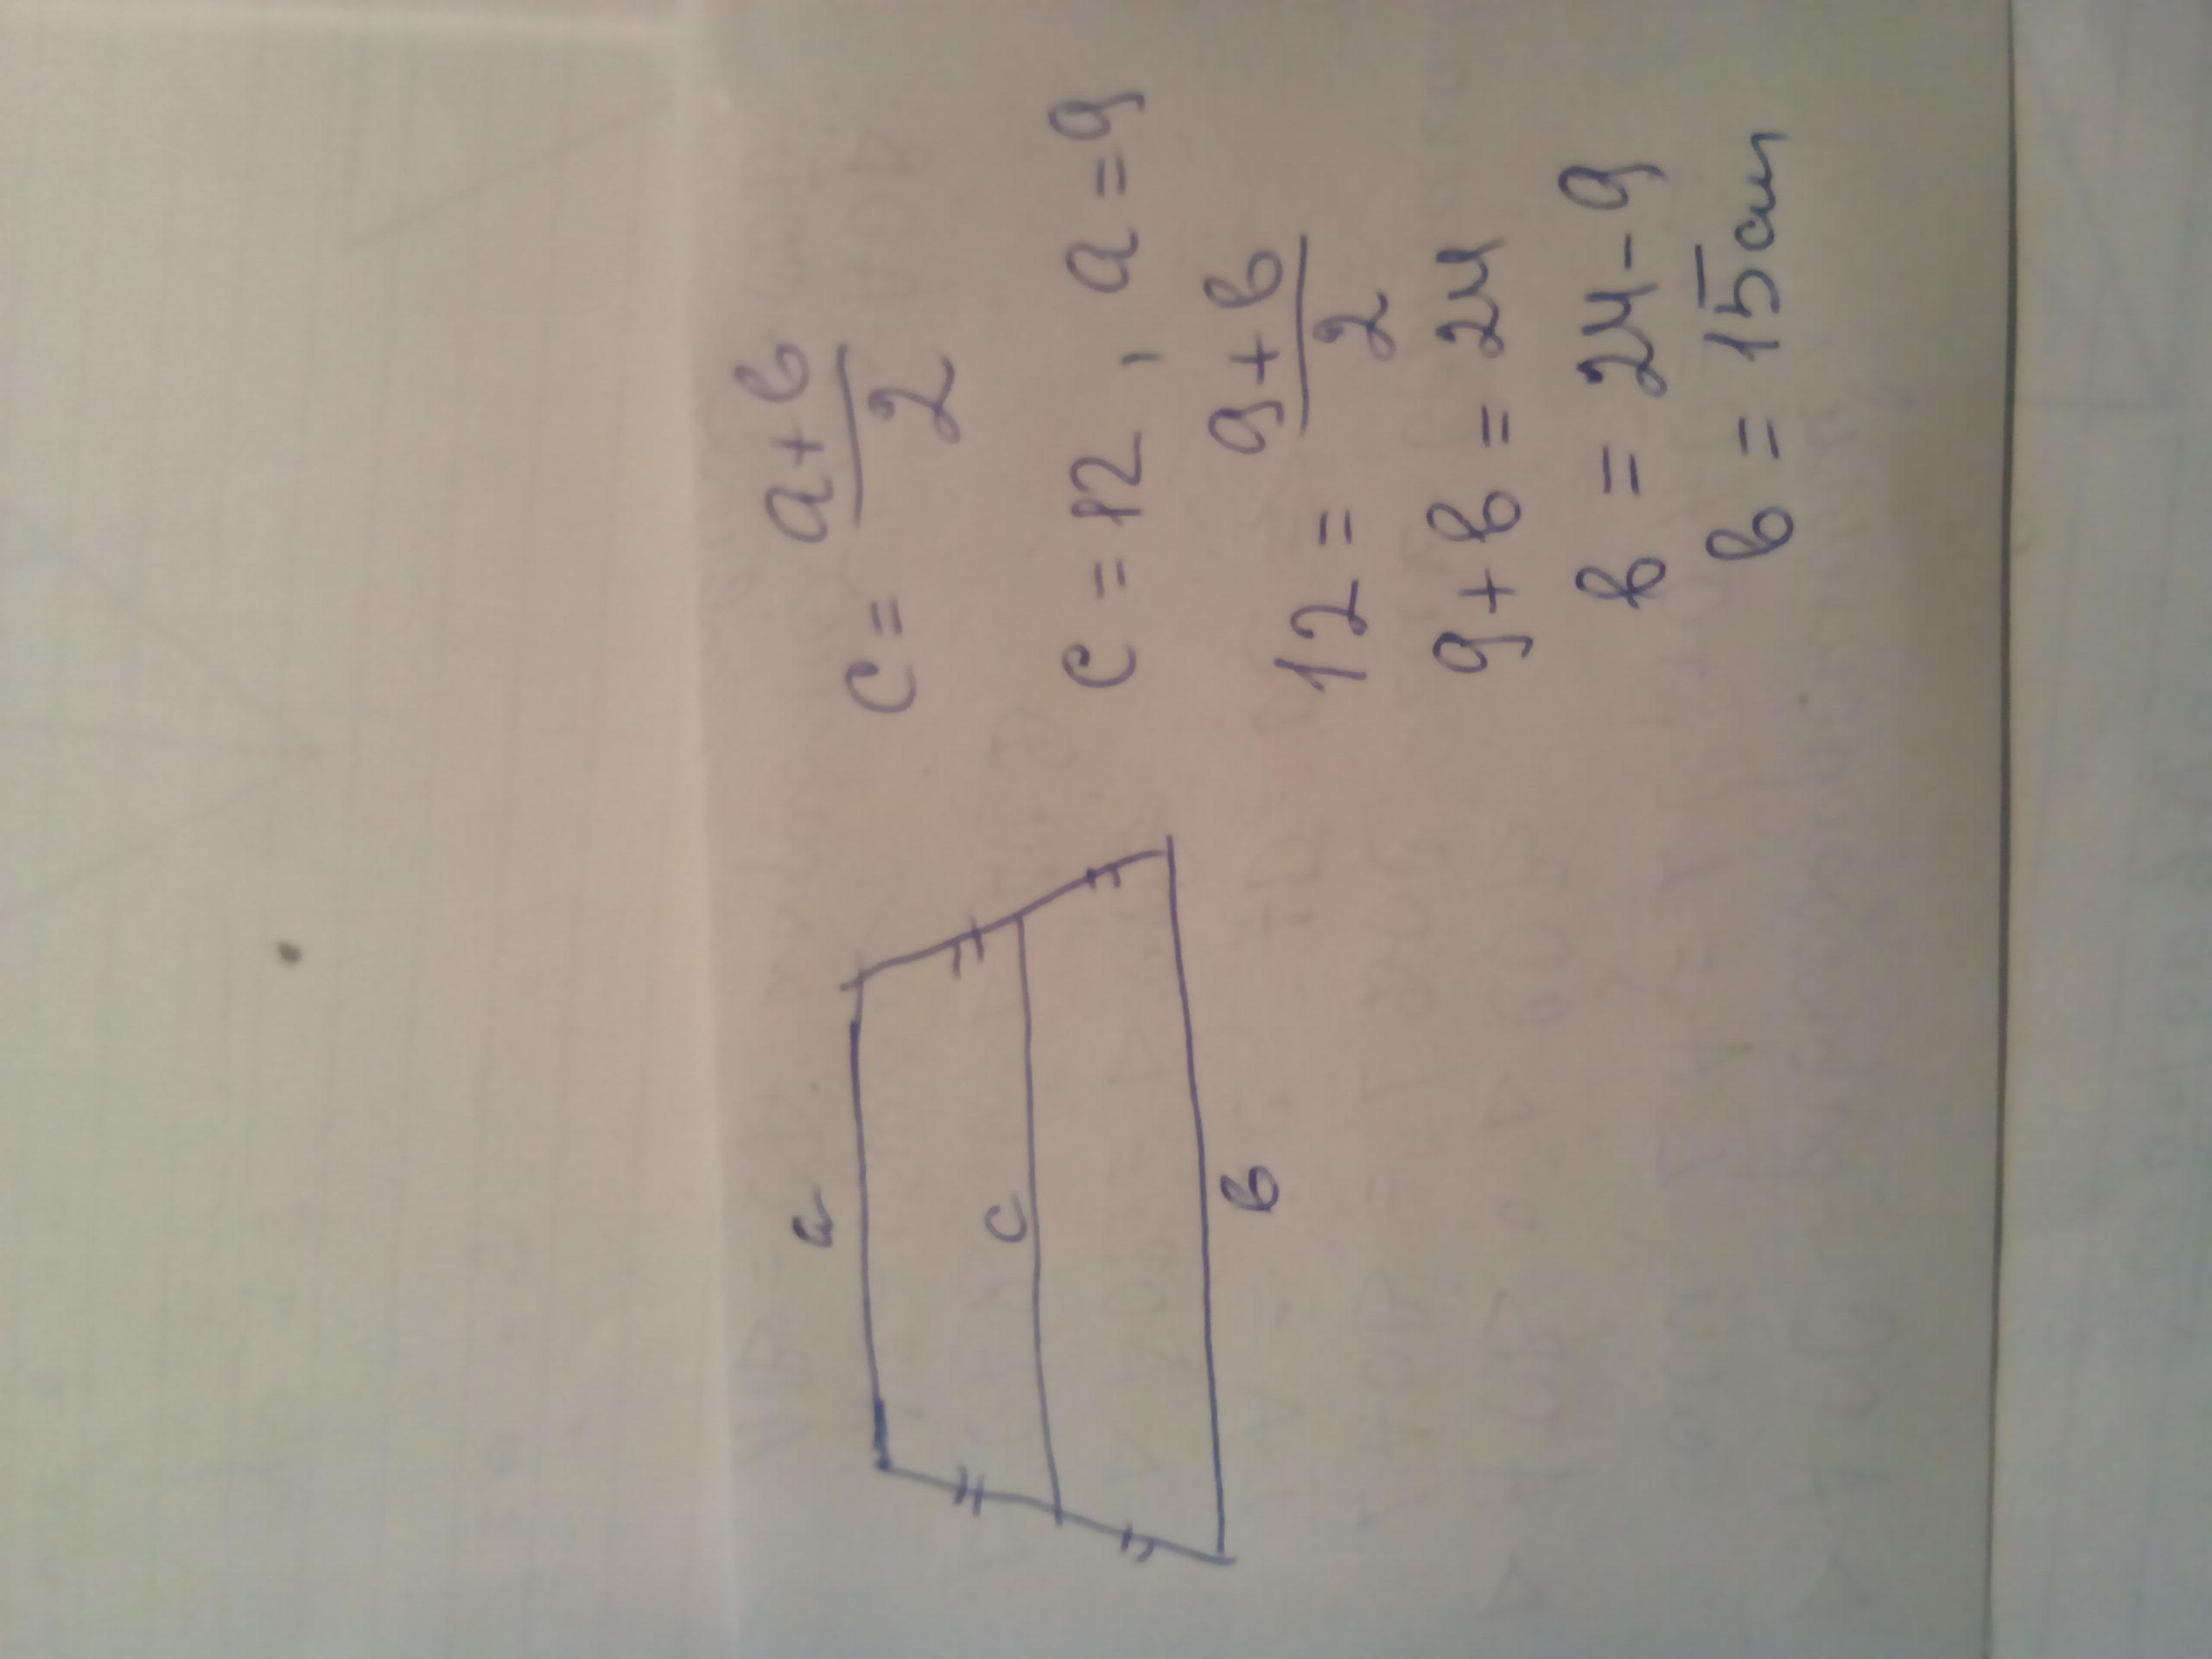 a
c
в
c = a+в/2
c = 12, a = 9
12 = 9+в/2
9 + в = 24
в = 24 - 9
в = 15 см